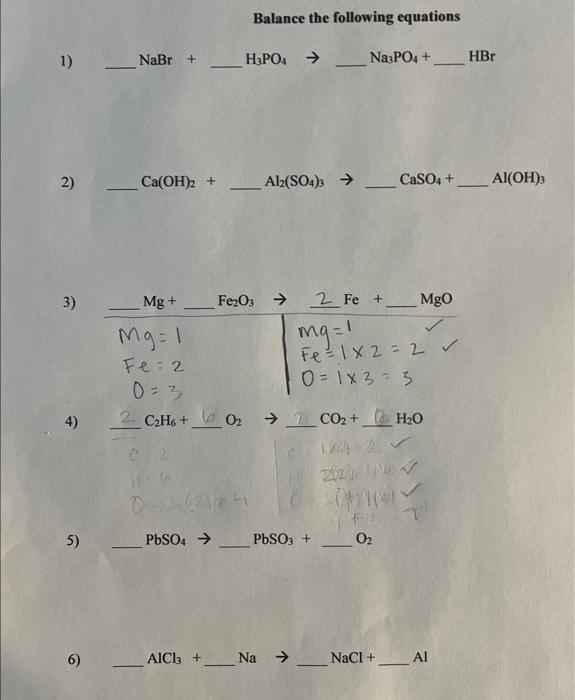 Balance the following equations
1) ___ NaBr + ___ H₃PO₄ → ___ Na₃PO₄ + ___ HBr
2) ___ Ca(OH)₂ + ___ Al₂(SO₄)₃ → ___ CaSO₄ + ___ Al(OH)₃
3) ___ Mg + ___ Fe₂O₃ → 2 Fe + ___ MgO
Mg = 1 mg = 1 ✓
Fe = 2 Fe = 1 x 2 = 2 ✓
O = 3 O = 1 x 3 = 3
4) 2 C₂H₆ + 6 O₂ → 2 CO₂ + 6 H₂O
C 2
H: 6
5) ___ PbSO₄ → ___ PbSO₃ + ___ O₂
6) ___ AlCl₃ + ___ Na → ___ NaCl + ___ Al